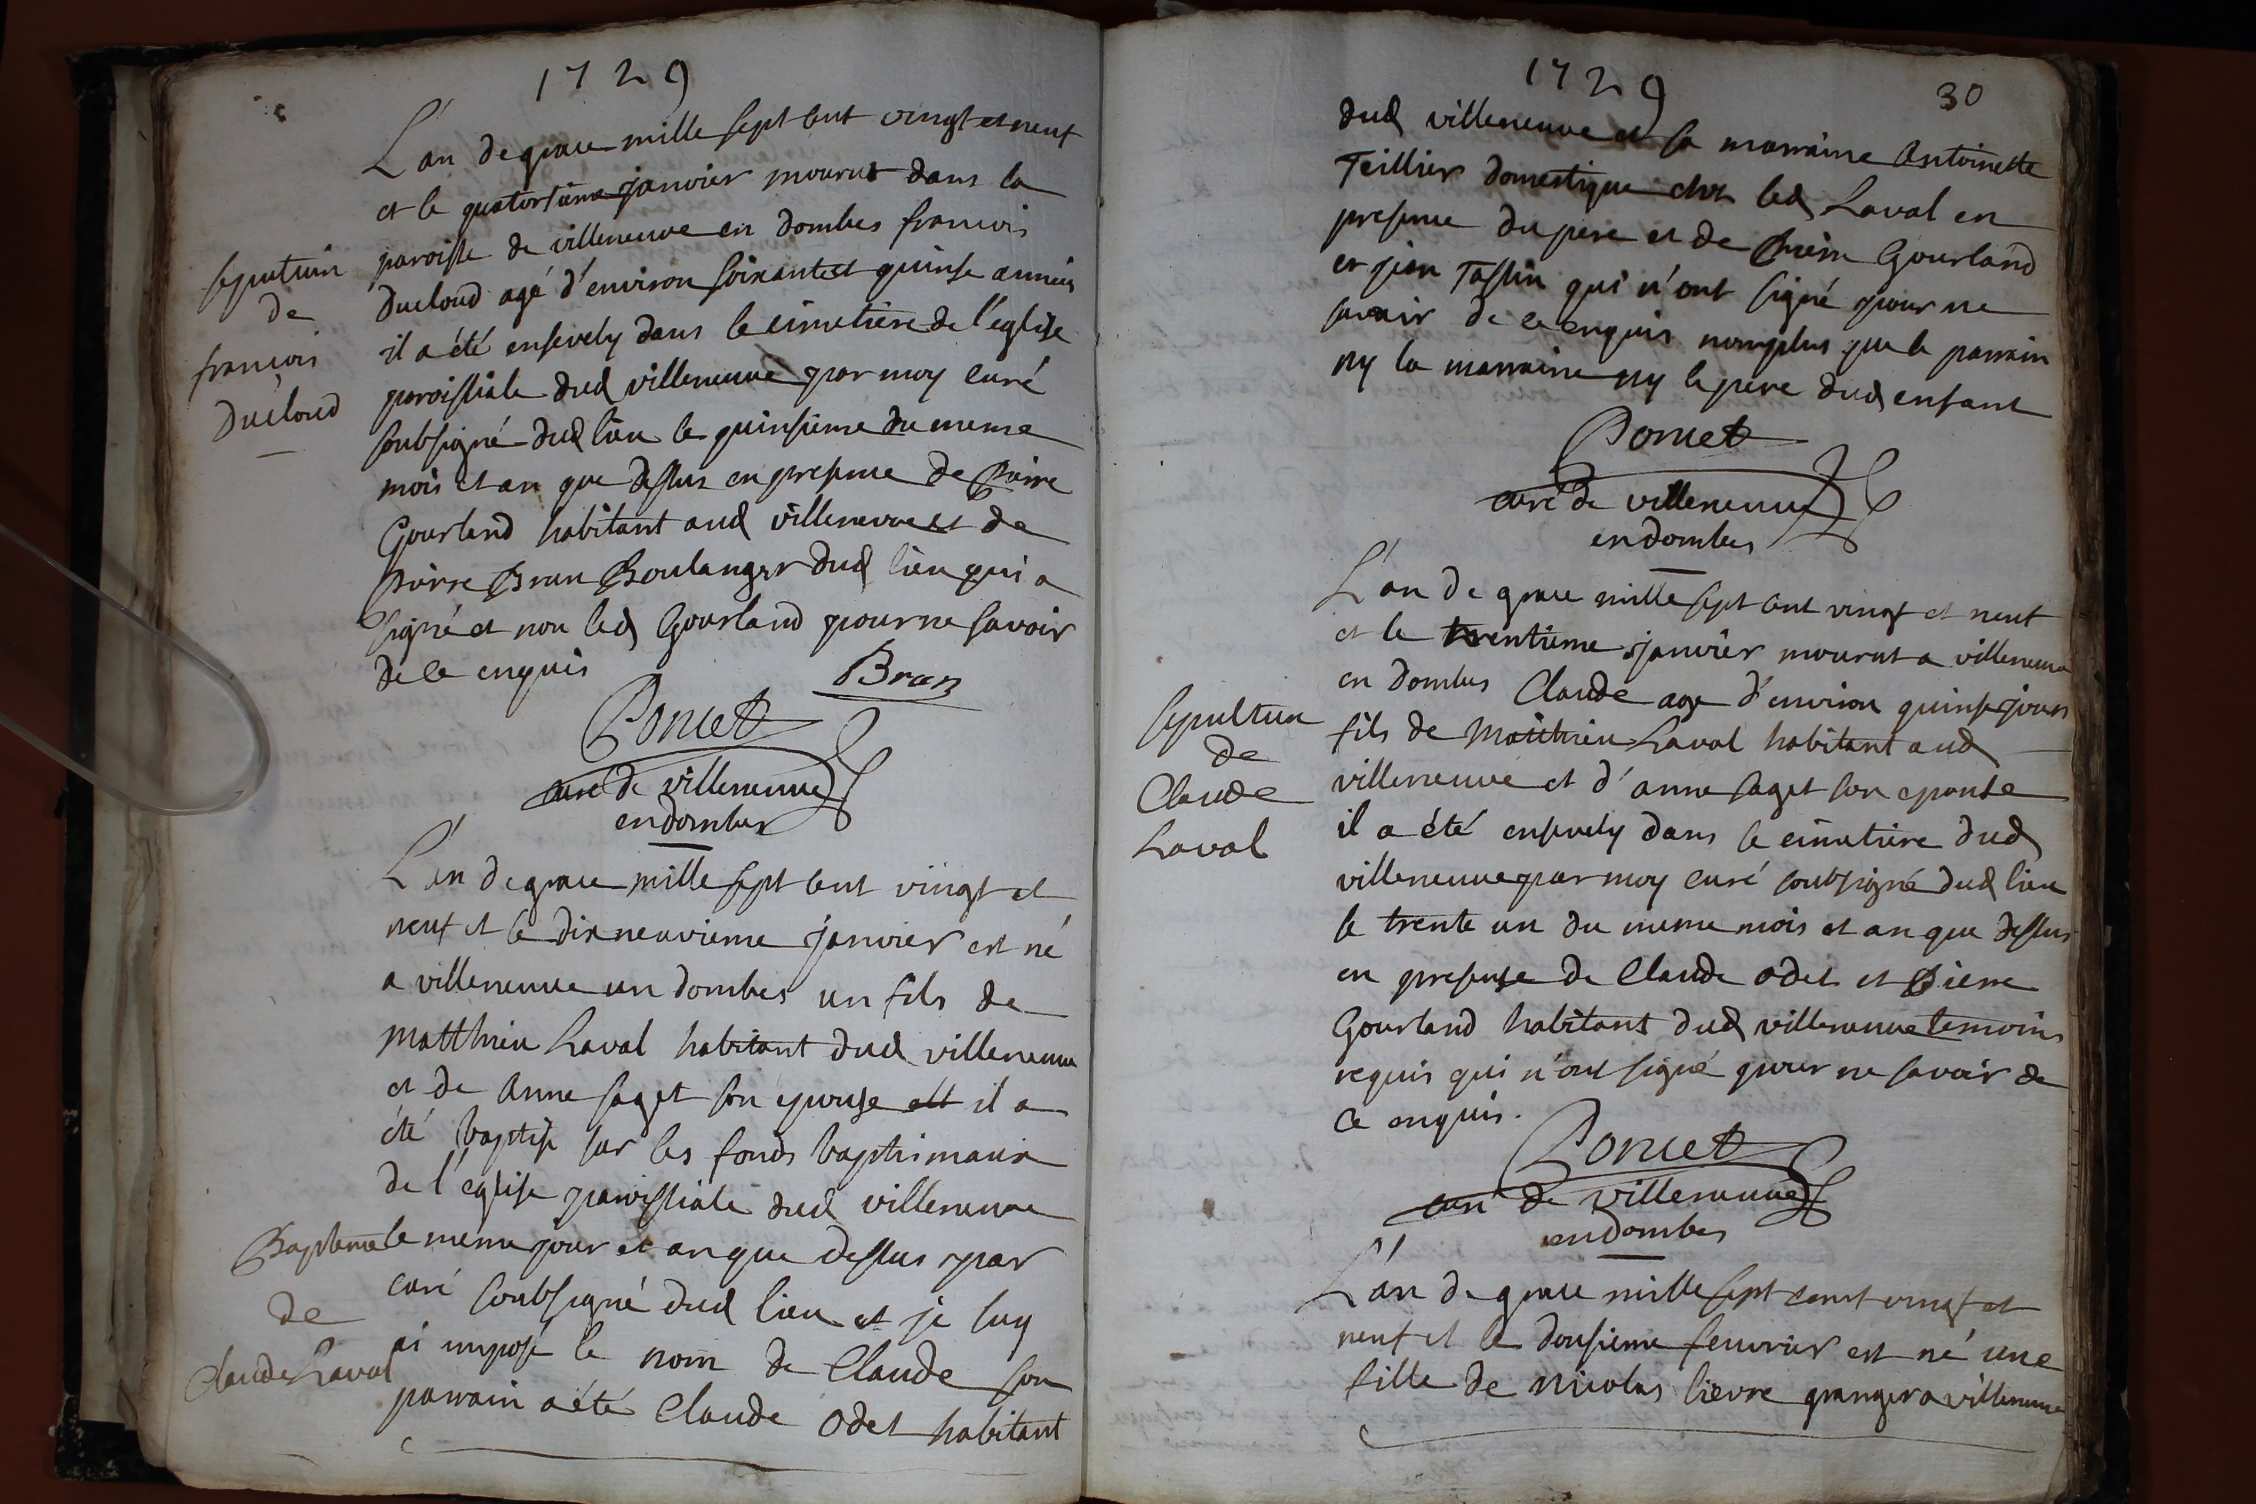 1729
L'an de grace mille sept cent vingt et neuf
et le quatorsieme janvier mourut dans la
paroisse de villeneuve en dombes francois
Ducloud agé d'environ soixante et quinse années
il a été ensevely dans le cimetiere de l'eglise
paroissiale dud villeneuve par moy curé
soubsigné dud lieu le quinsieme du meme
mois et an que dessus en presence de Pierre
Gourland habitant aud villeneuve et de
Pierre Bran Boulanger dud lieu qui a
signé et non led Gourland pour ne savoir
de ce enquis
Bran
Poncet
curé de villeneuve
en dombes
sepulture
de
francois
Ducloud
L'an de grace mille sept cent vingt et
neuf et le dix neuvieme janvier est né
a villeneuve en dombes un fils de
Matthieu Laval habitant dud villeneuve
et de Anne saget son epouse est il a
été baptisé sur les fonds baptismaux
de l'eglise paroissiale dud villeneuve
le meme jour et an que dessus par
curé soubsigné dud lieu et je luy
ai imposé le nom de Claude son
parrain a été Claude Odet habitant
Bapteme
de
Claude Laval
1729
30
dud villeneuve et sa marraine Antoinette
Teillier domestique chez led Laval en
presence du pere et de Pierre Gourland
et jean Tassin qui n'ont signé pour ne
savoir de ce enquis nomplus que le parrain
ny la marraine ny le pere dud enfant
Poncet
curé de villeneuve
en dombes
L'an de grace mille sept cent vingt et neuf
et le trentieme janvier mourut a villeneuve
en dombes Claude age d'environ quinse jours
fils de Matthieu Laval habitant aud
villeneuve et d'anne saget son epouse
il a été ensevely dans le cimetiere dud
villeneuve par moy curé soubsigné dud lieu
le trente un du meme mois et an que dessus
en presence de Claude odet et Pierre
Gourland habitant dud villeneuve temoins
requis qui n'ont signé pour ne savoir de
ce enquis.
Poncet
curé de villeneuve
en dombes
sepulture
de
Claude
Laval
L'an de grace mille sept cent vingt et
neuf et le dousieme feuvrier est né une
fille de Nicolas lievre granger a villeneuve